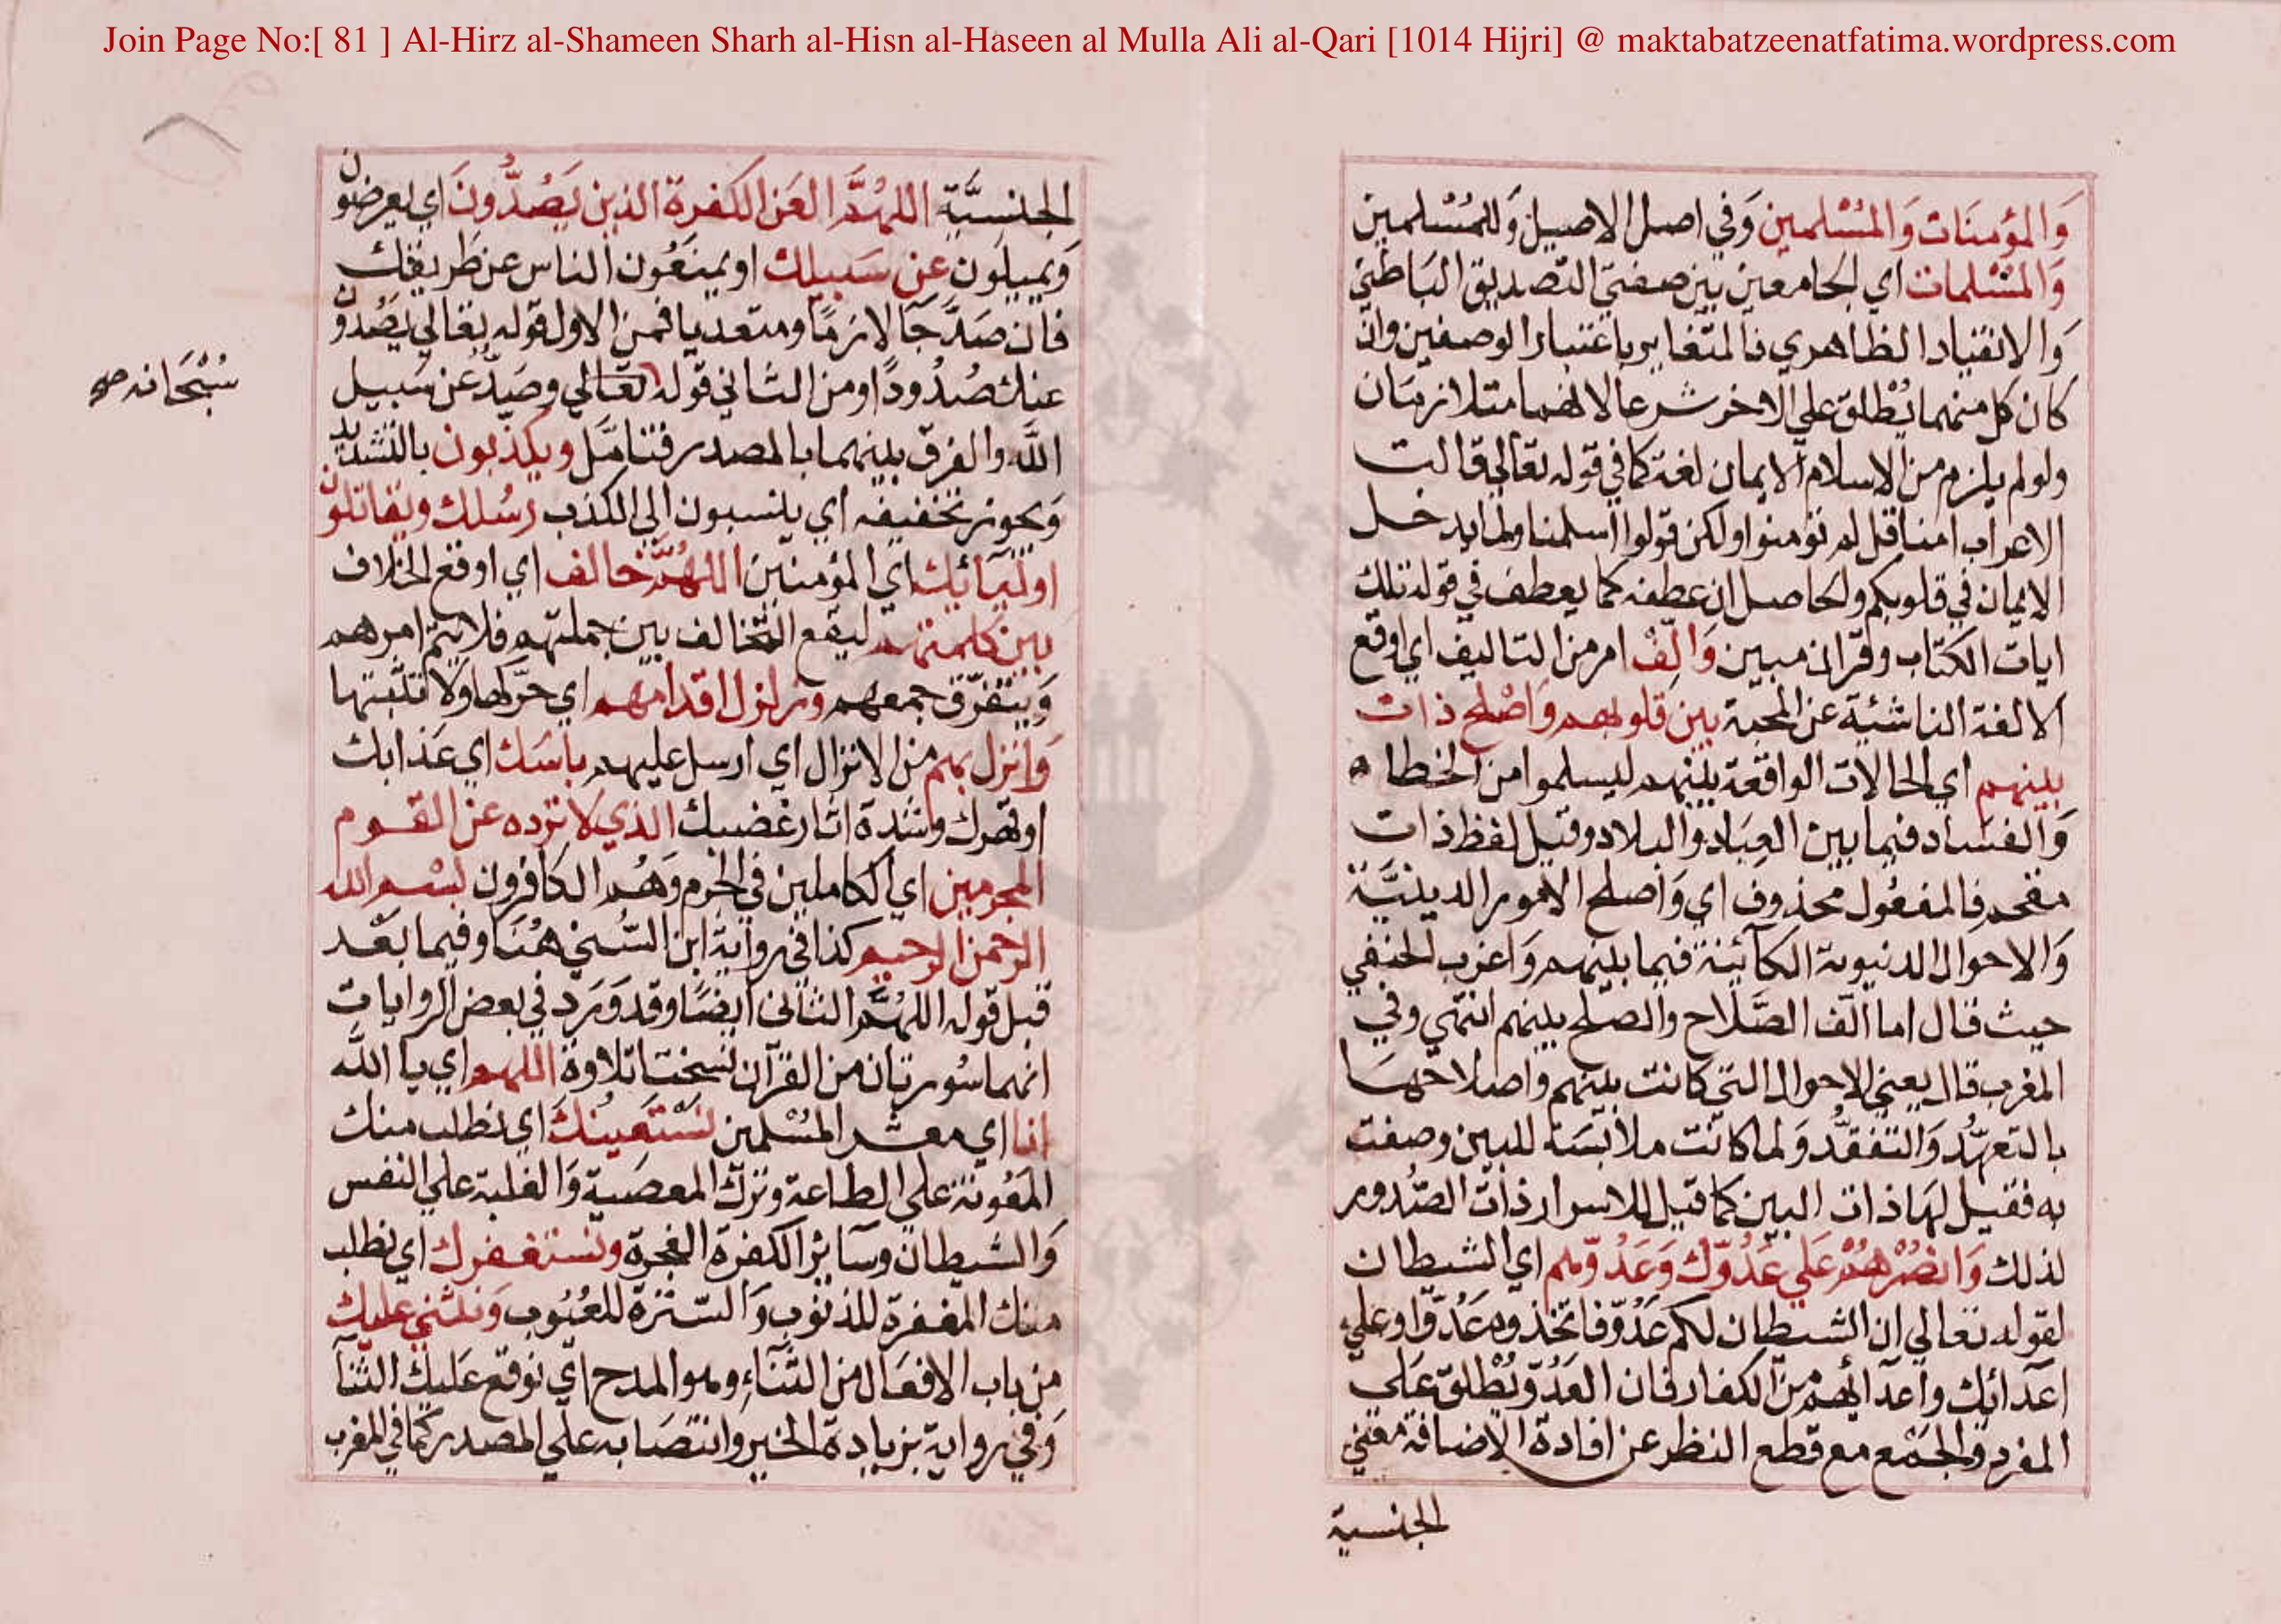 Join Page No:[ 81 ] Al-Hirz al-Shameen Sharh al-Hisn al-Haseen al Mulla Ali al-Qari [1014 Hijri] @ maktabatzeenatfatima.wordpress.com
وَالمؤمنَات وَالمُسْلمين وَفي اصل الاصيل وَللمُسْلمين
وَالمسْلمات اي الجامعين بين صفتي التصديق البَاطني
وَالانقياد الظاهري فالمتغاير باعتبار الوصفين وان
كان كل منهما يُطلق علي الاخر شرعا لانهما متلازمان
ولو لم يلزم من الاسلام الايمان لغة كما في قوله تعالي قالت
الاعراب امنا قل لم تؤمنوا ولكن قولوا اسلمنا ولما يدخل
الايمان في قلوبكم والحاصل ان عطفه كما يعطف في قوله تلك
ايات الكتاب وقران مبين وَالّفْ امر من التاليف اي اوقع
الالفة الناشئة عن المحبة بين قلوبهم وَاصْلح ذات
بينهم اي الحالات الواقعة بينهم ليسلموا من الخطا
وَالفسَاد فيما بين العِبَاد وَالبلاد وقيل لفظ ذات
مقحم فالمفعُول محذوف اي وَاصلح الامور الدينيَّة
وَالاحوال الدنيوية الكائِنة فيما بينهم وَاغرب الحنفي
حيث قال اما الّف الصَّلاح والصلح بينهم انتهي وفي
المغرب قال يعني الاحوال التي كانت بينهم واصلاحهَا
بالتعهّد وَالتفقّد وَلما كانَت ملابسَة للبين وصفت
به فقيل لهَا ذات البين كما قيل للاسرار ذات الصّدور
لذلك وَانصُرْهُمْ عَلي عَدُوّك وَعَدُوّهم اي الشيطان
لقوله تعالي ان الشيطان لكم عَدُوّ فاتخذوه عَدُوّا وعلي
اعدائك واعدائهم من الكفار فان العَدُوّ يُطلق عَلي
المفرد وَالجَمْع مع قطع النظر عن افادة الاضافة معني
الجنسية
الجنسيَّة اللهُمَّ العَن الكفرة الذين يَصُدُّونَ اي يعرضون
وَيميلون عن سَبيلك او يمنعُون الناس عن طريقك
فان صَدَّ جَا لازمًا ومتعديا فمن الاول قوله تعالي يصُدون
عنك صُدُودًا ومن الثاني قوله تعالي وصَدٌّ عن سَبيل
سُبْحَانه صح
اللَّه والفرق بينهما بالمصدر فتامَّل ويكذبون بالتشديد
وَيجوز تخفيفه اي ينسبون الي الكذب رُسُلك ويقاتلون
اوليآئك اي المؤمنين اللهُمَّ خالف اي اوقع الخلاف
بين كلمتهم ليقع التخالف بين جملتهم فلا يتم امرهم
وَيتفرّق جمعهم وزلزل اقدامهم اي حَرّكها ولا تثبتها
وَانزل بهم من الانزال اي ارسل عليهم باسَك اي عَذابك
او قهرك وشدة اثار غضبك الذي لا ترده عن القوم
المجرمين اي الكاملين في الجرم وَهُم الكافرون بسْم الله
الرحمن الرحيم كذا في رواية ابن السُّني هُنَا وفيما بَعْد
قبل قوله اللهُمَّ الثاني ايضًا وقد وَرَد في بعض الروايات
انهما سُورتان من القرآن نسختا تلاوة اللهم اي يا اللَّه
انا اي معشر المسْلمين نسْتَعينُكَ اي نطلب منك
المَعُونة علي الطاعة وترك المعصية وَالغلبة علي النفس
وَالشيطان وسآئر الكفرة الفجرة ونستغفرك اي نطلب
منك المغفرة للذنوب وَالسترة للعُيُوب وَنثني عليك
من باب الافعَال من الثَّنَاء وهو المدح اي نوقع عَليك الثنآ
وَفي رواية بزيادة الخير وانتصَابه علي المصدر كما في المغرب